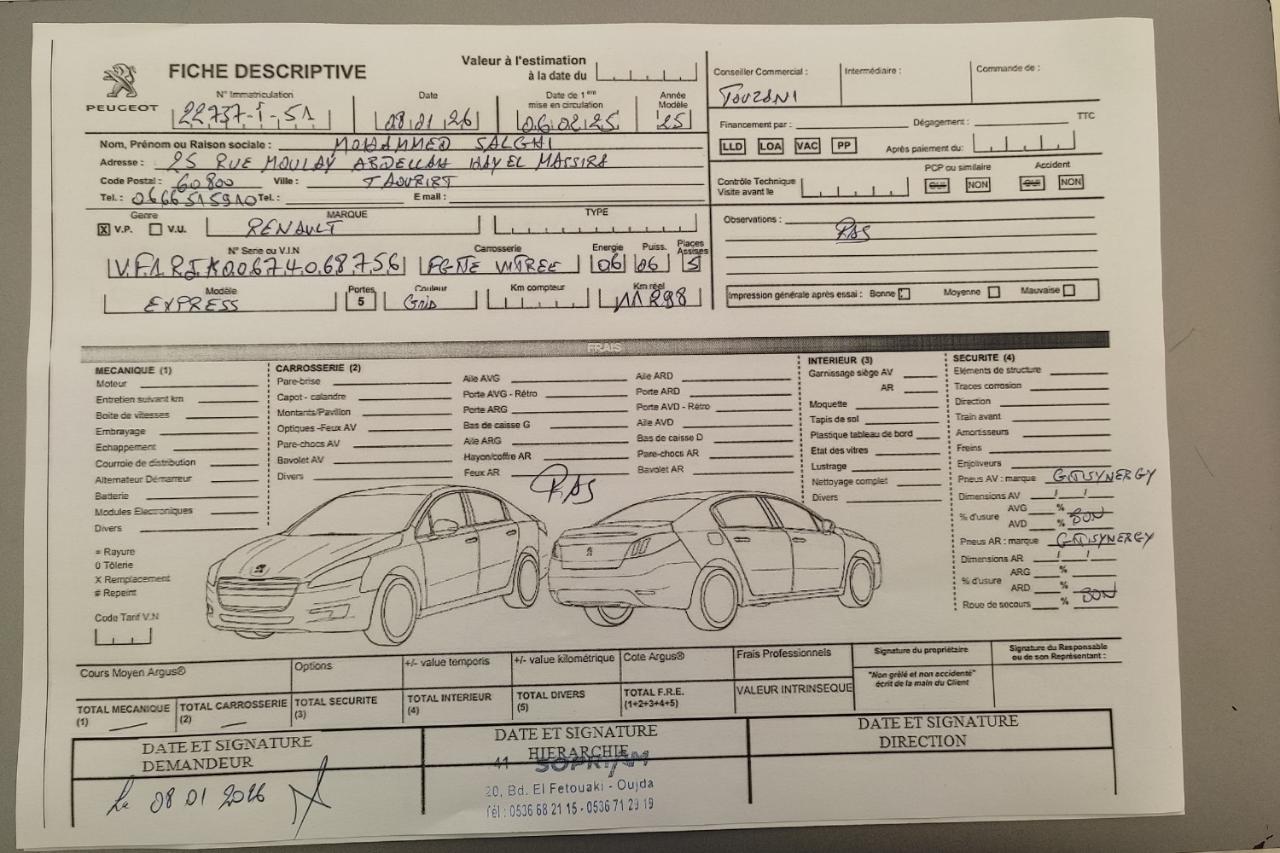 PEUGEOT
FICHE DESCRIPTIVE
Valeur à l'estimation
à la date du
N° Immatriculation
22737-I-51
Date
08 01 26
Date de 1ère
mise en circulation
06 02 25
Année
Modèle
25
Conseiller Commercial :
TOUZANI
Intermédiaire :
Commande de :
Financement par :
Dégagement :
TTC
LLD LOA VAC PP
Après paiement du :
Nom, Prénom ou Raison sociale : MOHAMMED SALGHI
Adresse : 25 RUE MOULAY ABDELLAH HAY EL MASSIRA
Code Postal : 60800 Ville : TAOURIRT
Tel. : 0666515910 Tel. : E mail :
Contrôle Technique
Visite avant le
PCP ou similaire
OUI NON
Accident
OUI NON
Genre
X V.P. V.U.
MARQUE
RENAULT
TYPE
N° Serie ou V.I.N
VF1RJK00674068756
Carrosserie
FGNE VITREE
Energie
06
Puiss.
06
Places
Assises
5
Modèle
EXPRESS
Portes
5
Couleur
Gris
Km compteur
Km réel
11 298
Observations :
RAS
Impression générale après essai : Bonne Moyenne Mauvaise
FRAIS
MECANIQUE (1)
Moteur
Entretien suivant km
Boite de vitesses
Embrayage
Echappement
Courroie de distribution
Alternateur Démarreur
Batterie
Modules Electroniques
Divers
= Rayure
0 Tôlerie
X Remplacement
# Repeint
Code Tarif V.N
CARROSSERIE (2)
Pare-brise
Capot - calandre
Montants/Pavillon
Optiques -Feux AV
Pare-chocs AV
Bavolet AV
Divers
Aile AVG
Porte AVG - Rétro
Porte ARG
Bas de caisse G
Aile ARG
Hayon/coffre AR
Feux AR
RAS
Aile ARD
Porte ARD
Porte AVD - Rétro
Aile AVD
Bas de caisse D
Pare-chocs AR
Bavolet AR
INTERIEUR (3)
Garnissage siège AV
AR
Moquette
Tapis de sol
Plastique tableau de bord
Etat des vitres
Lustrage
Nettoyage complet
Divers
SECURITE (4)
Eléments de structure
Traces corrosion
Direction
Train avant
Amortisseurs
Freins
Enjoliveurs
Pneus AV : marque GITISYNERGY
Dimensions AV / /
% d'usure AVG %
AVD % BON
Pneus AR : marque GITISYNERGY
Dimensions AR / /
% d'usure ARG %
ARD % BON
Roue de secours %
Cours Moyen Argus®
Options
+/- value temporis
+/- value kilométrique
Cote Argus®
Frais Professionnels
Signature du propriétaire
Signature du Responsable
ou de son Représentant :
"Non grêlé et non accidenté"
écrit de la main du Client
TOTAL MECANIQUE
(1)
TOTAL CARROSSERIE
(2)
TOTAL SECURITE
(3)
TOTAL INTERIEUR
(4)
TOTAL DIVERS
(5)
TOTAL F.R.E.
(1+2+3+4+5)
VALEUR INTRINSEQUE
DATE ET SIGNATURE
DEMANDEUR
Le 08 01 2026
DATE ET SIGNATURE
HIERARCHIE
41 SOPRIAM
20, Bd. El Fetouaki - Oujda
Tél : 0536 68 21 15 - 0536 71 29 19
DATE ET SIGNATURE
DIRECTION